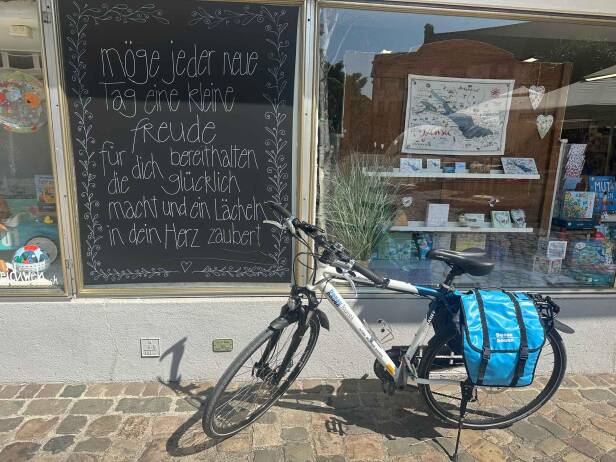 möge jeder neue
Tag eine kleine
freude
für dich bereithalten
die glücklich
macht und ein Lächeln
in dein Herz zaubert